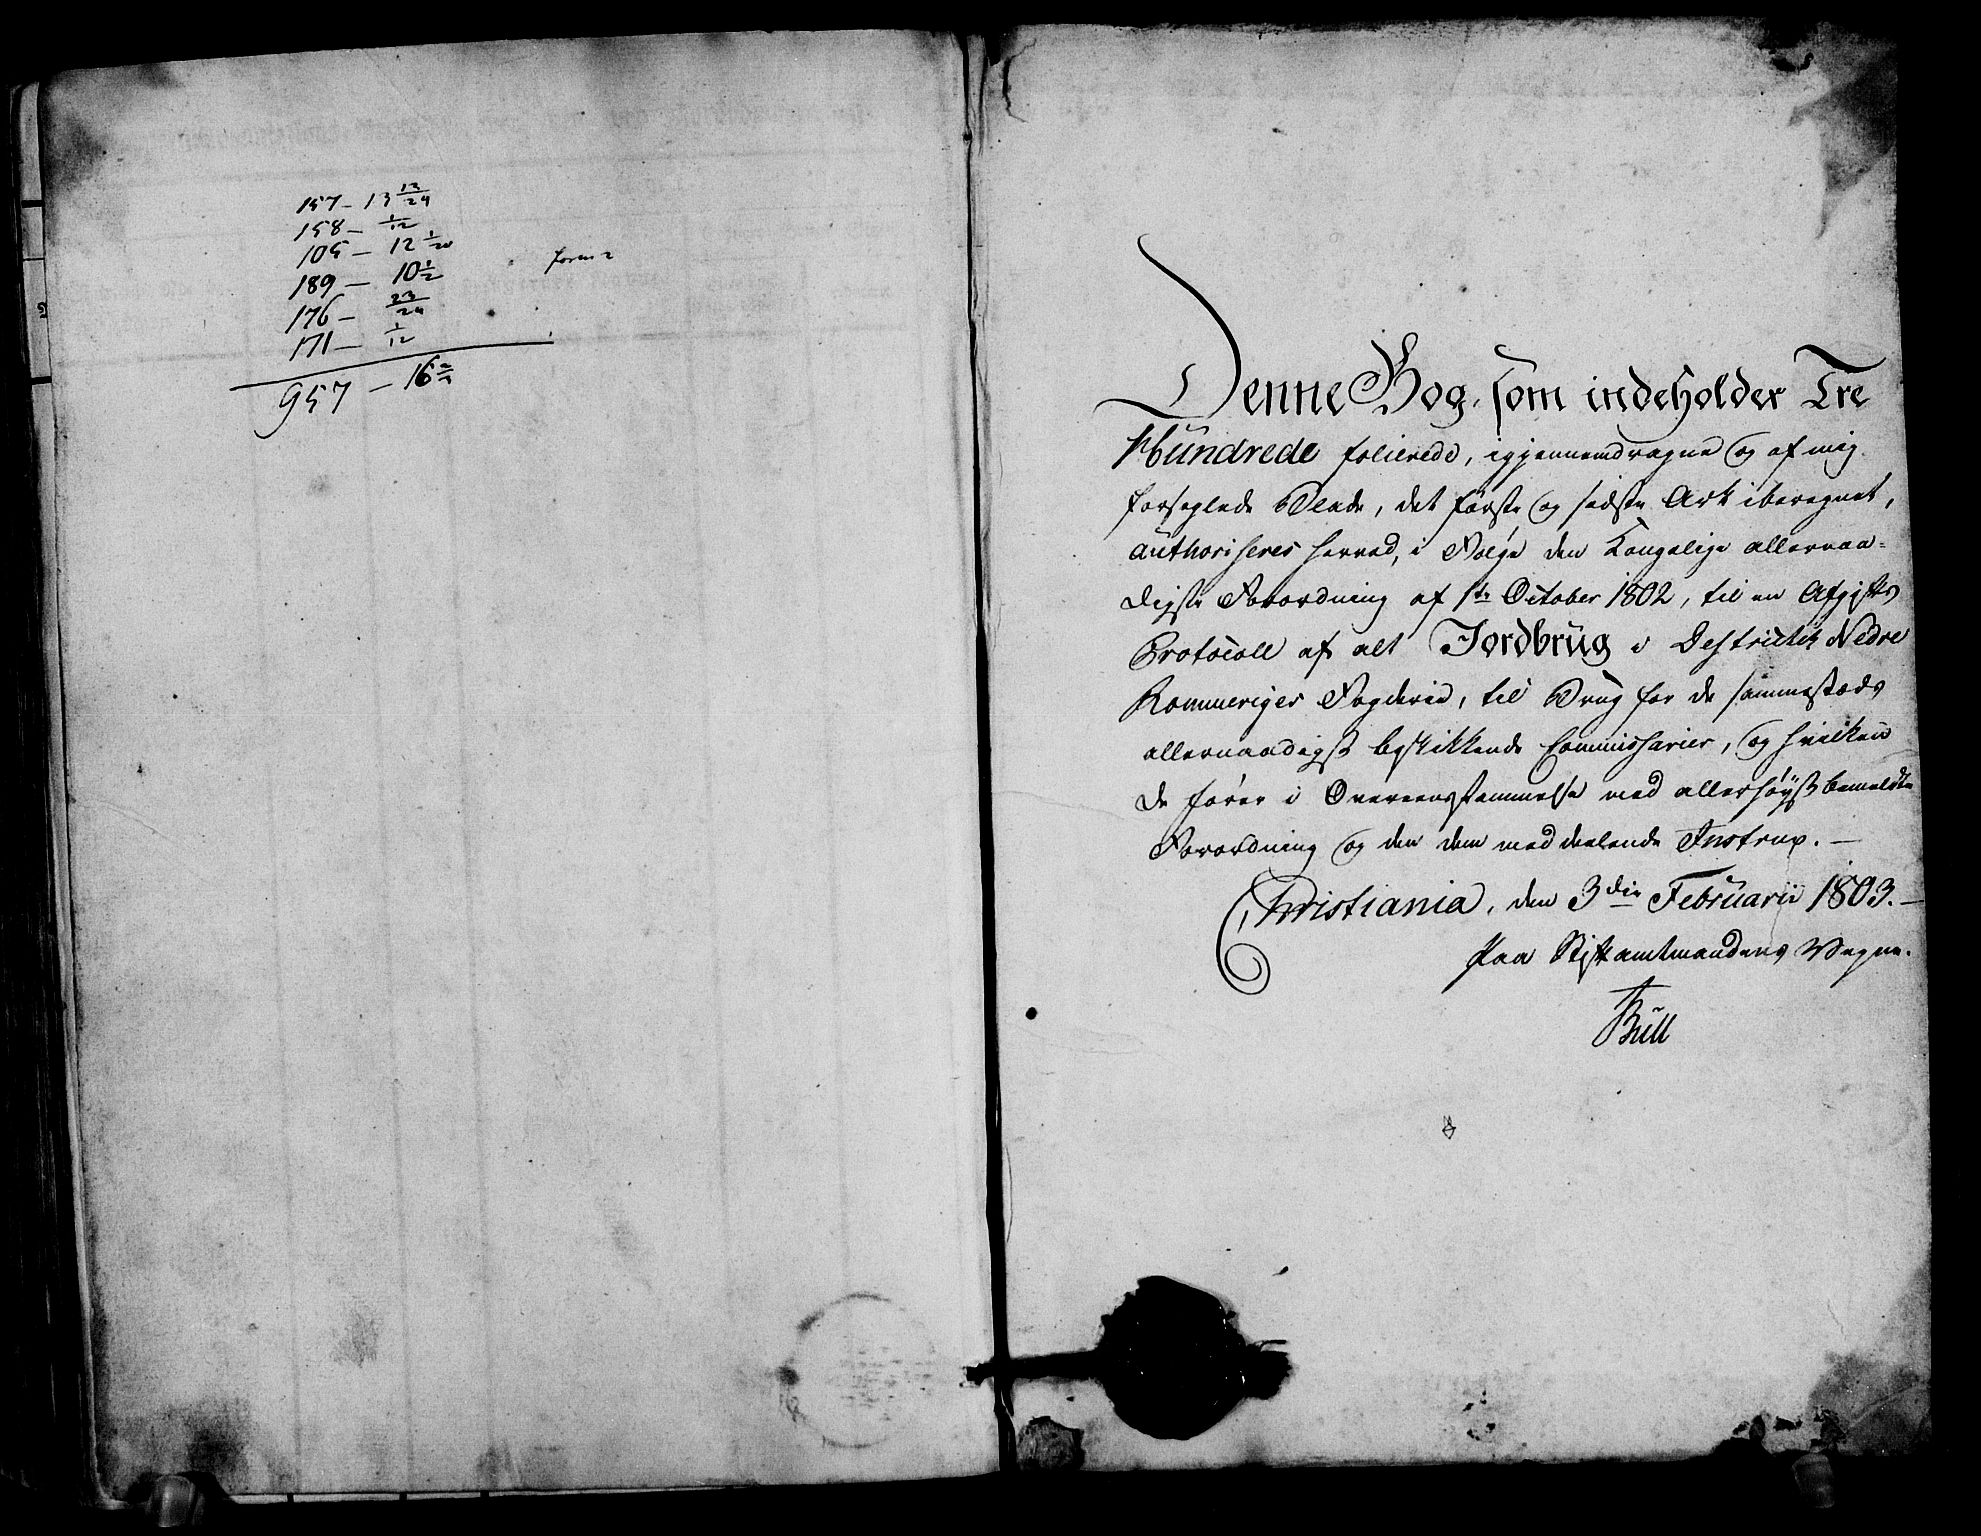 157 - 13 13/24
158 - 1/12
105 - 12 1/20
189 - 10 1/2
176 - 23/24
171 - 1/12
957 - 16
Denne Bog, som indeholder Tre
Hundrede folierede, igjennemdragne og af mig
forseglede Blade, det første og sidste Ark iberegnet,
authoriseres herved, i Følge den Kongelige allernaa-
digste Forordning af 1ste October 1802, til en Afgifts
Protocoll af alt Jordbrug i Destrictet Nedre
Rommeriges Fogderie, til Brug for de sammesteds
allernaadigst beskikkende Commissarier, og hvilken
de fører i Overeensstemmelse med allerhøyst bemeldte
Forordning og den dem meddeelende Instrux. —
Christiania, den 3die Februarii 1803. —
Paa Stiftamtmandens Vegne.
Bull